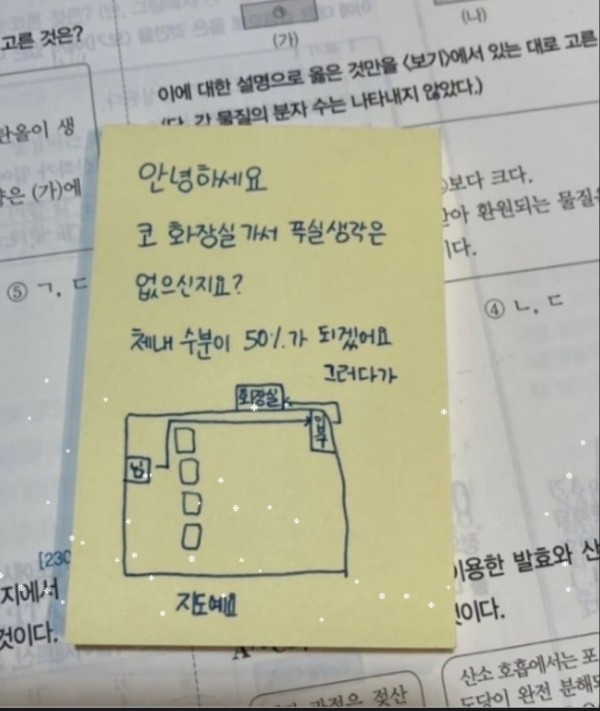 고른 것은?
(가)
(나)
이에 대한 설명으로 옳은 것만을 <보기>에서 있는 대로 고른
(단, 각 물질의 분자 수는 나타내지 않았다.)
란올이 생
은 (가)에
보다 크다.
아 환원되는 물질은
이다.
⑤ ㄱ, ㄷ
④ ㄴ, ㄷ
안녕하세요
코 화장실가서 푸실생각은
없으신지요?
체내 수분이 50%가 되겠어요
그러다가
화장실
입구
님
지도예요
[230
지에서
것이다.
이용한 발효와 산
것이다.
산소 호흡에서는 포
도당이 완전 분해되
과정은 젖산